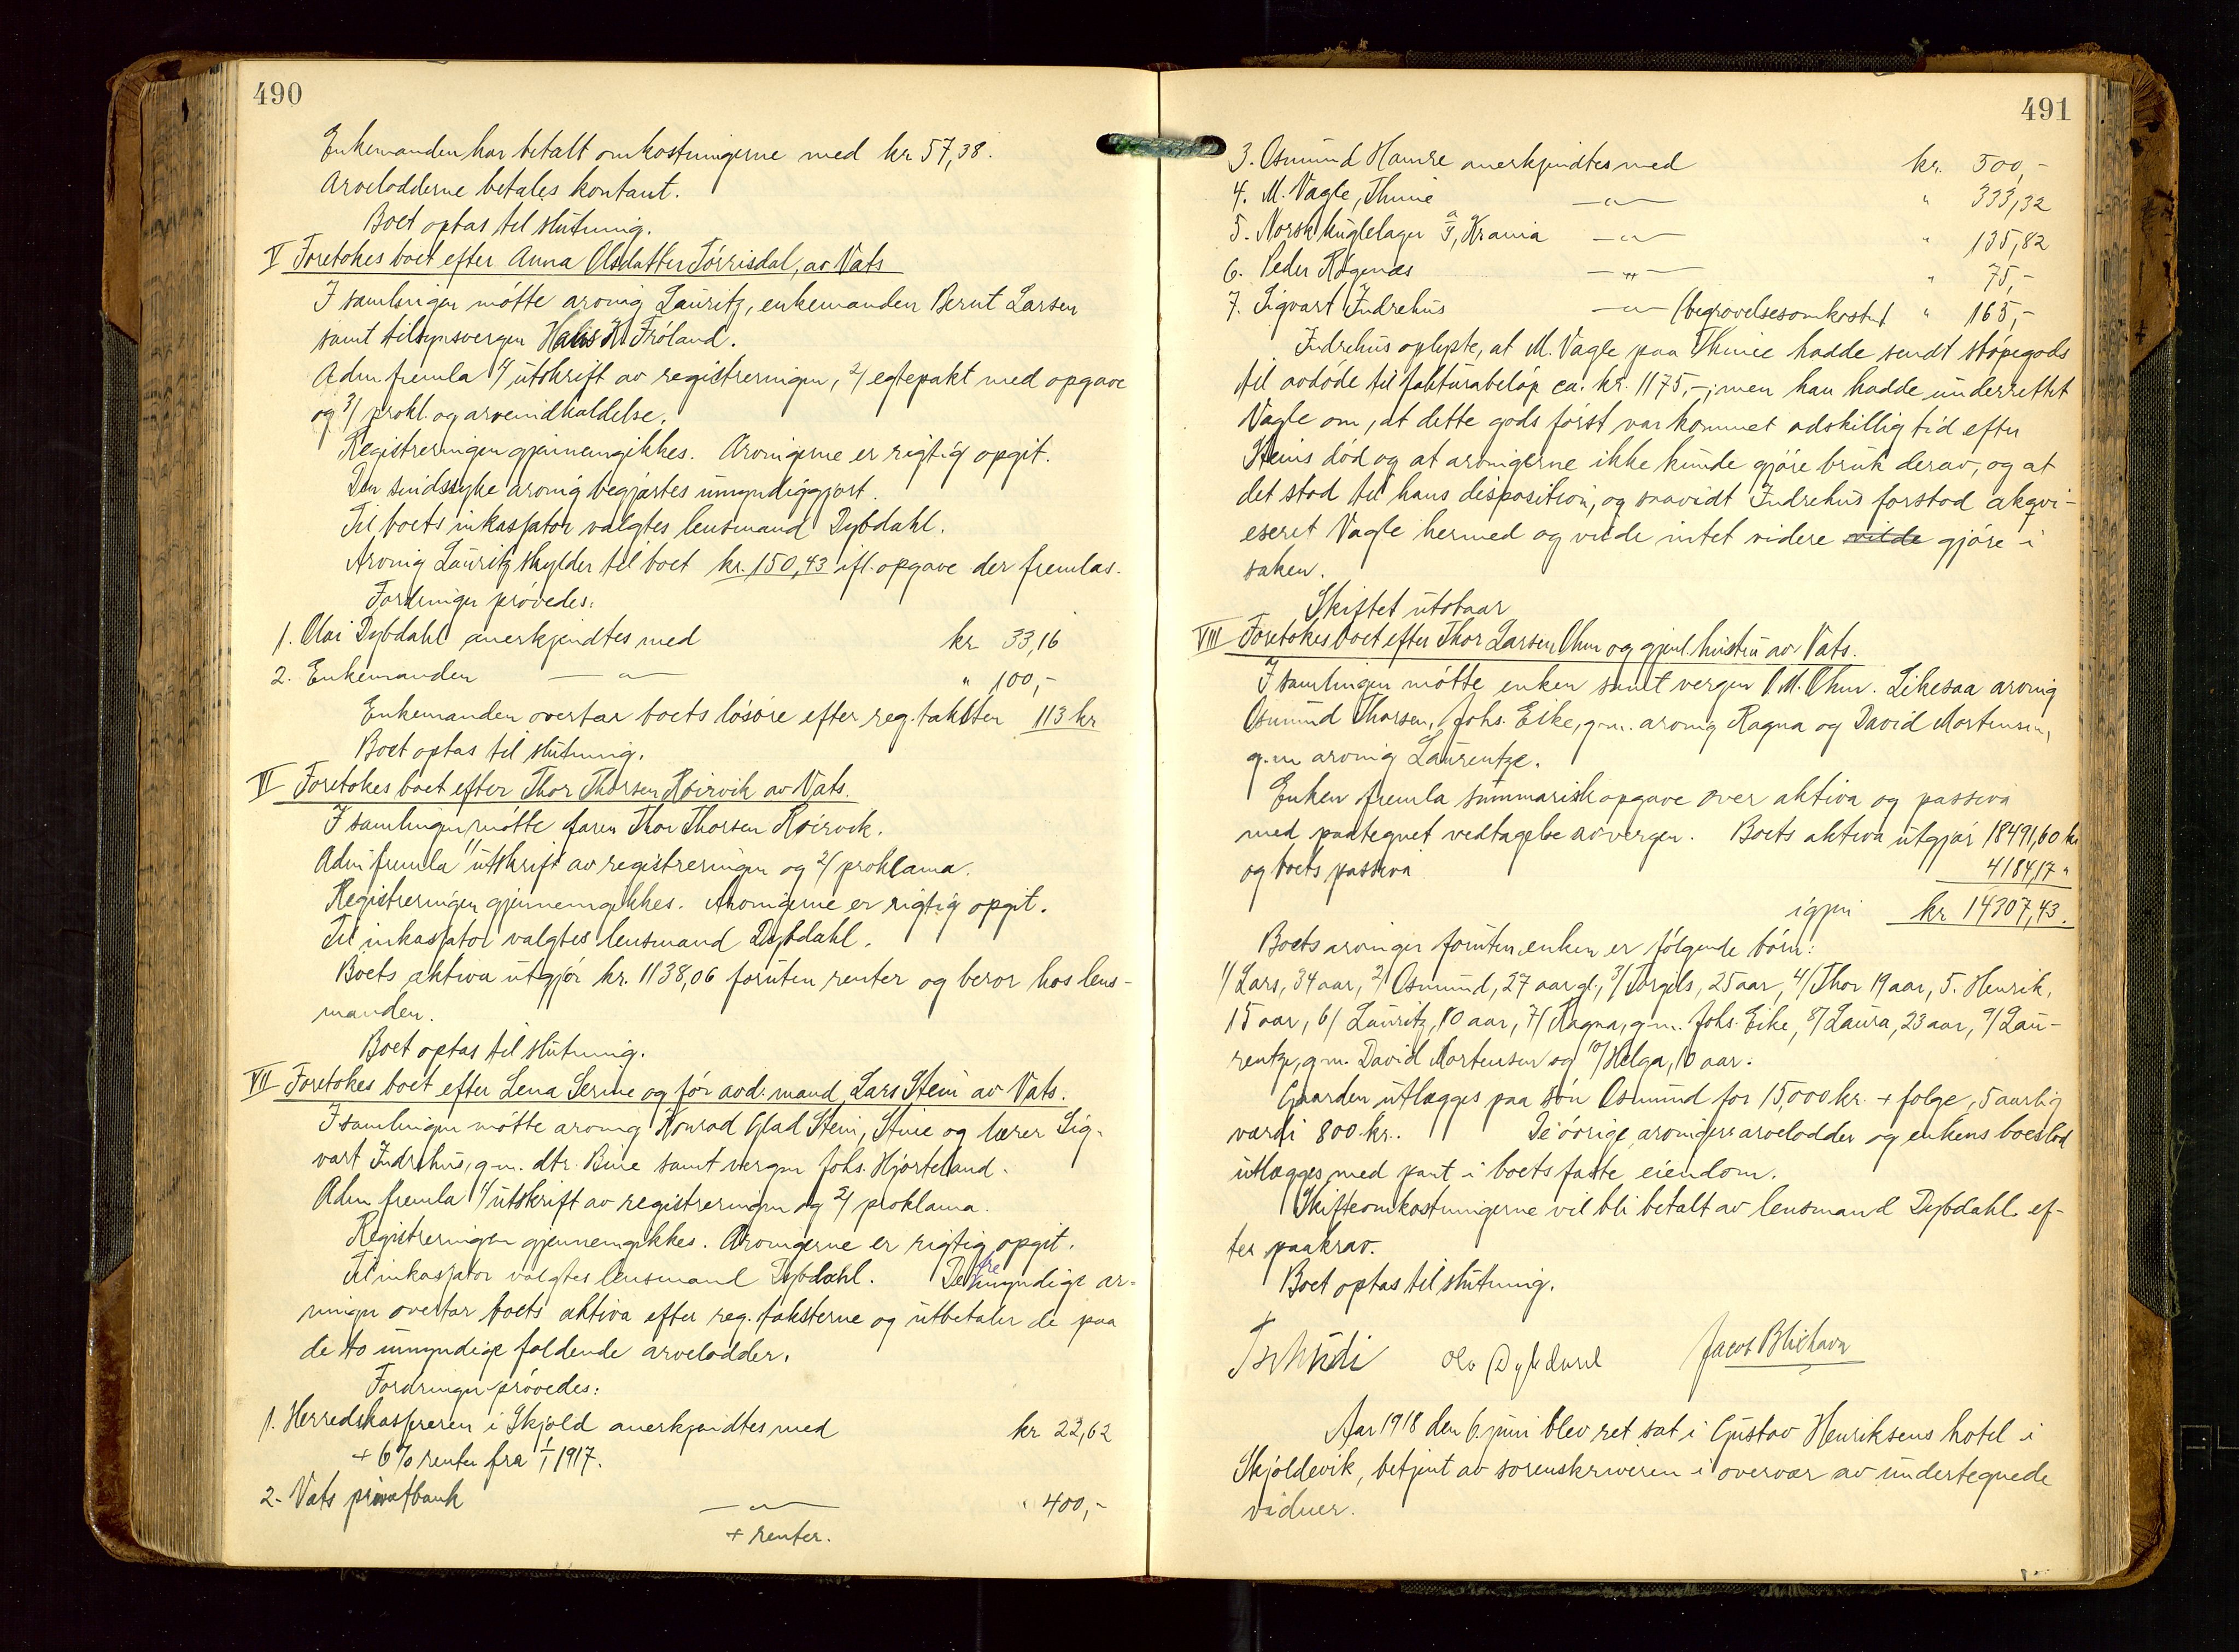 490
Enkemanden har betalt omkostningerne med kr 57,38.
Arvelodderne betales kontant.
Boet optas til slutning.
V Foretokes boet efter Anna Olsdatter Törrisdal, av Vats
I samlingen mötte arving Lauritz, enkemanden Bernt Larsen
samt tilsynsvergen Hans K Fröland.
Adm fremla 1/ utskrift av registreringen, 2/ egtepakt med opgave
og 3/ prokl. og arveindkaldelse.
Registreringen gjennemgikkes. Arvingerne er rigtig opgit.
Den sindssyke arving begjærtes umyndiggjort.
Til boets inkassator valgtes lensmand Dybdahl.
Arving Lauritz skylder til boet kr. 150,43 ifl. opgave der fremlas.
Fordringer prövedes:
1. Olai Dybdahl anerkjendtes med kr 33,16
2. Enkemanden —"— " 100,-
Enkemanden overtar boets lösöre efter reg. taksten 113 kr
Boet optas til slutning.
VI Foretokes boet efter Thor Thorsen Röirvik av Vats.
I samlingen mötte faren Thor Thorsen Röirvik.
Adm fremla 1/ utskrift av registreringen og 2/ proklama.
Registreringen gjennemgikkes. Arvingerne er rigtig opgit.
Til inkassator valgtes lensmand Dybdahl.
Boets aktiva utgjör kr. 1138,06 foruten renter og beror hos lens-
manden.
Boet optas til slutning.
VII Foretokes boet efter Lena Serine og för avd. mand Lars Stein av Vats.
I samlingen mötte arving Konrad Glad Stein, Stine og lærer Sig-
vart Indrehus, g.m. dtr. Bine samt vergen Johs. Hjorteland.
Adm fremla 1/ utskrift av registreringen og 2/ proklama.
Registreringen gjennemgikkes. Arvingerne er rigtig opgit.
Til inkassator valgtes lensmand Dybdahl. De tre myndige ar-
vinger overtar boets aktiva efter reg. taksterne og utbetaler de paa
de to umyndige faldende arvelodder.
Fordringer prövedes:
1. Herredskassereren i Skjold anerkjendtes med kr 22,62
+ 6% renter fra 1/1 1917.
2. Vats privatbank —"— " 400,-
+ renter.
491
3. Osmund Hamre anerkjendtes med kr. 500,-
4. M. Vagle, Thime —"— " 333,32
5. Norsk kuglelager a/s, Krania —"— " 135,82
6. Peder Rögenæs —"— " 75,-
7. Sigvart Indrehus —"— (begravelsesomkostn) " 165,-
Indrehus oplyste, at M. Vagle paa Thime hadde sendt stöpegods
til avdöde til fakturabelöp ca. kr. 1175,-; men han hadde underrettet
Vagle om, at dette gods först var kommet adskillig tid efter
Steins död og at arvingerne ikke kunde gjöre bruk derav, og at
det stod til hans disposition, og saavidt Indrehus forstod akqvi-
eseret Vagle hermed og vilde intet videre vilde gjöre i
saken.
Skiftet utstaar
VIII Foretokes boet efter Thor Larsen Ohm og gjenl. hustru av Vats.
I samlingen mötte enken samt vergen O.M. Ohm. Likesaa arving
Osmund Thorsen, Johs. Eike, g.m. arving Ragna og David Mortensen,
g.m arving Laurentze.
Enken fremla summarisk opgave over aktiva og passiva
med paategnet vedtagelse av vergen. Boets aktiva utgjör 18491,60 kr
og boets passiva 4184,17 "
igjen kr 14307,43.
Boets arvinger foruten enken er fölgende börn:
1/ Lars, 34 aar, 2/ Osmund, 27 aar gl., 3/ Torgils, 25 aar, 4/ Thor 19 aar, 5. Henrik,
15 aar, 6/ Lauritz, 10 aar, 7/ Ragna, g.m. Johs. Eike, 8/ Laura, 23 aar, 9/ Lau-
rentze, g.m. David Mortensen og 10/ Helga, 10 aar.
Gaarden utlægges paa sön Osmund for 15,000 kr. + folge, 5 aarlig
værdi 800 kr.. De övrige arvingers arvelodder og enkens boeslod
utlægges med pant i boets faste eiendom.
Skifteomkostningerne vil bli betalt av lensmand Dybdahl ef-
ter paakrav.
Boet optas til slutning.
Tschudi Olai Dybdahl Jacob Blikhavn
Aar 1918 den 6. juni blev ret sat i Gustav Henriksens hotel i
Skjoldevik, betjent av sorenskriveren i overvær av undertegnede
vidner.